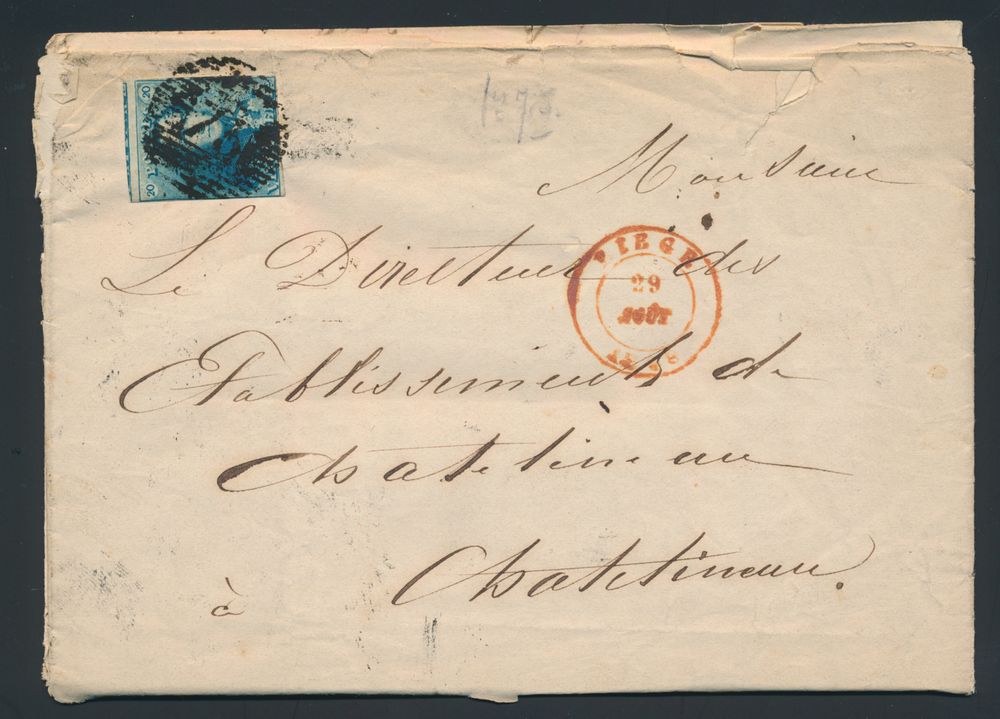 20
20
Monsieur
Le Directeur des
Etablissements de
Chatelineau
à Chatelineau.
LIEGE
29
AOÛT